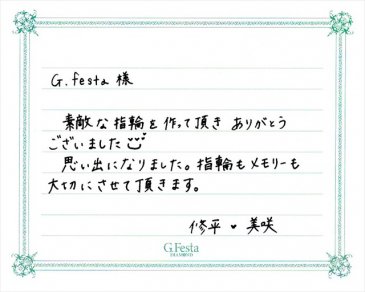 G.festa 様
素敵な指輪を作って頂き ありがとう
ございました
思い出になりました。指輪もメモリーも
大切にさせて頂きます。
修平 ♥ 美咲
G.Festa
DIAMOND